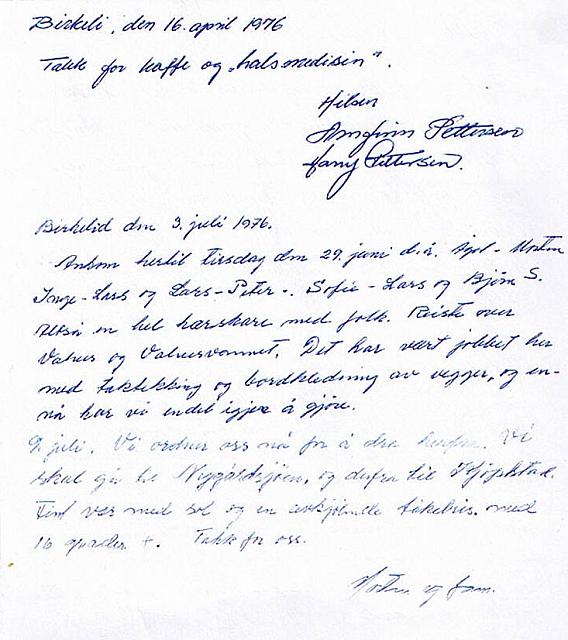 Birkeli, den 16. april 1976
Takk for kaffe og „halsmedisin".
Hilsen
Arnfinn Pettersen
Pettersen.
Birkelid den 3. juli 1976.
Ankom hertil tirsdag den 29. juni d.å.
Inge-Lars og Lars-Peter-. Sofie-Lars og Bjørn S.
Altså en hel hærskare med folk. Reiste over
Valnes og Valnesvannet. Det har vært jobbet her
med taktekking og bordkledning av vegger, og en-
nå har vi endel igjen å gjøre.
9. juli. Vi ordner oss nå for å dra herfra. Vi
skal gå til og derfra til
Fint vær med sol og en avkjølende med
16 grader +. Takk for oss.
og fam.